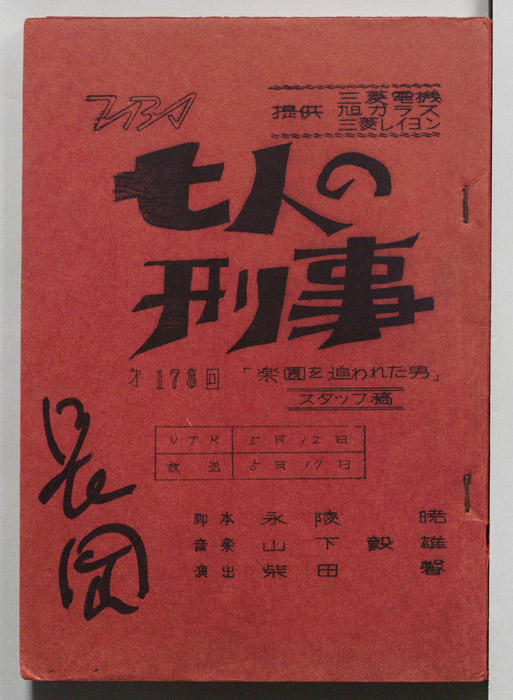 TBS
三菱電機
提供 旭ガラス
三菱レイヨン
七人の
刑事
才178回 「楽園を追われた男」
スタッフ稿
VTR 5月12日
放送 5月17日
脚本 永陵 暁
音楽 山下毅雄
演出 柴田 馨